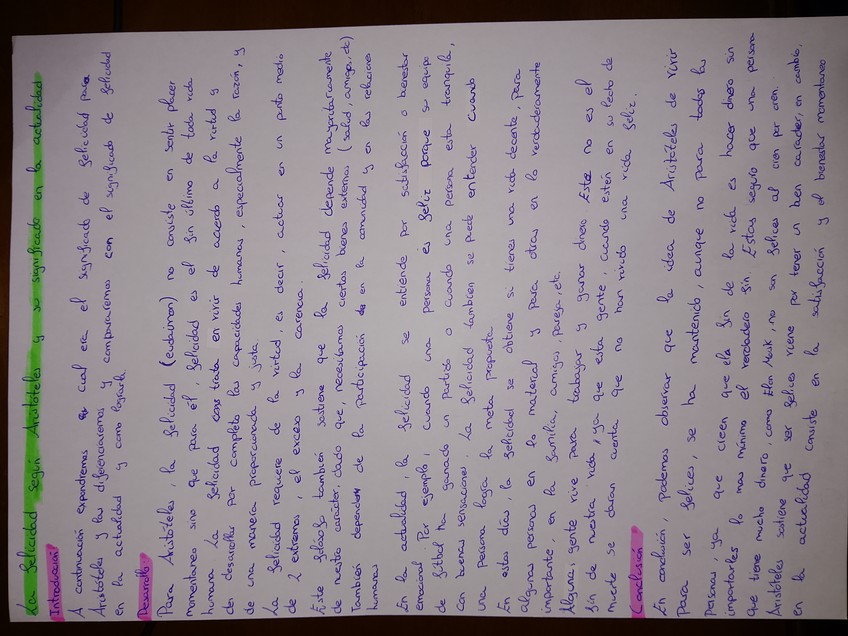 La felicidad según Aristóteles y su significado en la actualidad
Introducción
A continuación expondremos cual era el significado de felicidad para
Aristóteles y las diferenciaremos y compararemos con el significado de felicidad
en la actualidad y como lograrla.
Desarrollo
Para Aristóteles, la felicidad (eudaimon) no consiste en sentir placer
momentaneo sino que para él, felicidad es el fin último de toda vida
humana. La felicidad trata en vivir de acuerdo a la virtud y
desarrollar por completo las capacidades humanas, especialmente la razón, y
de una manera proporcionada y justa.
La felicidad requiere de la virtud, es decir, actuar en un punto medio
de 2 extremos, el exceso y la carencia.
Este filósofo tambien sostiene que la felicidad depende mayoritariamente
de nuestro carácter, dado que, necesitamos ciertos bienes externos (salud, amigos, etc)
También depende de la participación en la comunidad y en las relaciones
humanas
En la actualidad, la felicidad se entiende por satisfacción o bienestar
emocional. Por ejemplo, cuando una persona es feliz porque su equipo
de fútbol ha ganado un partido o cuando una persona esta tranquila,
con buenas sensaciones. La felicidad tambien se puede entender cuando
una persona logra la meta propuesta.
En estos días, la felicidad se obtiene si tienes una vida decente, para
algunas personas en lo material y para otras en lo verdaderamente
importante, en la familia, amigos, pareja, etc.
Alguna gente vive para trabajar y ganar dinero. Este no es el
fin de nuestra vida, ya que esta gente, cuando estén en su lecho de
muerte se darán cuenta que no han vivido una vida feliz.
Conclusión
En conclusión, podemos observar que la idea de Aristóteles de vivir
para ser felices, se ha mantenido, aunque no para todas las
personas, ya que creen que el fin de la vida es hacer dinero sin
importarles lo mas mínimo el verdadero fin. Estas seguro que una persona
que tiene mucho dinero, como Elon Musk, no son felices al cien por cien.
Aristóteles sostiene que ser felices viene por tener un buen carácter, en cambio,
en la actualidad consiste en la satisfacción y el bienestar momentaneo